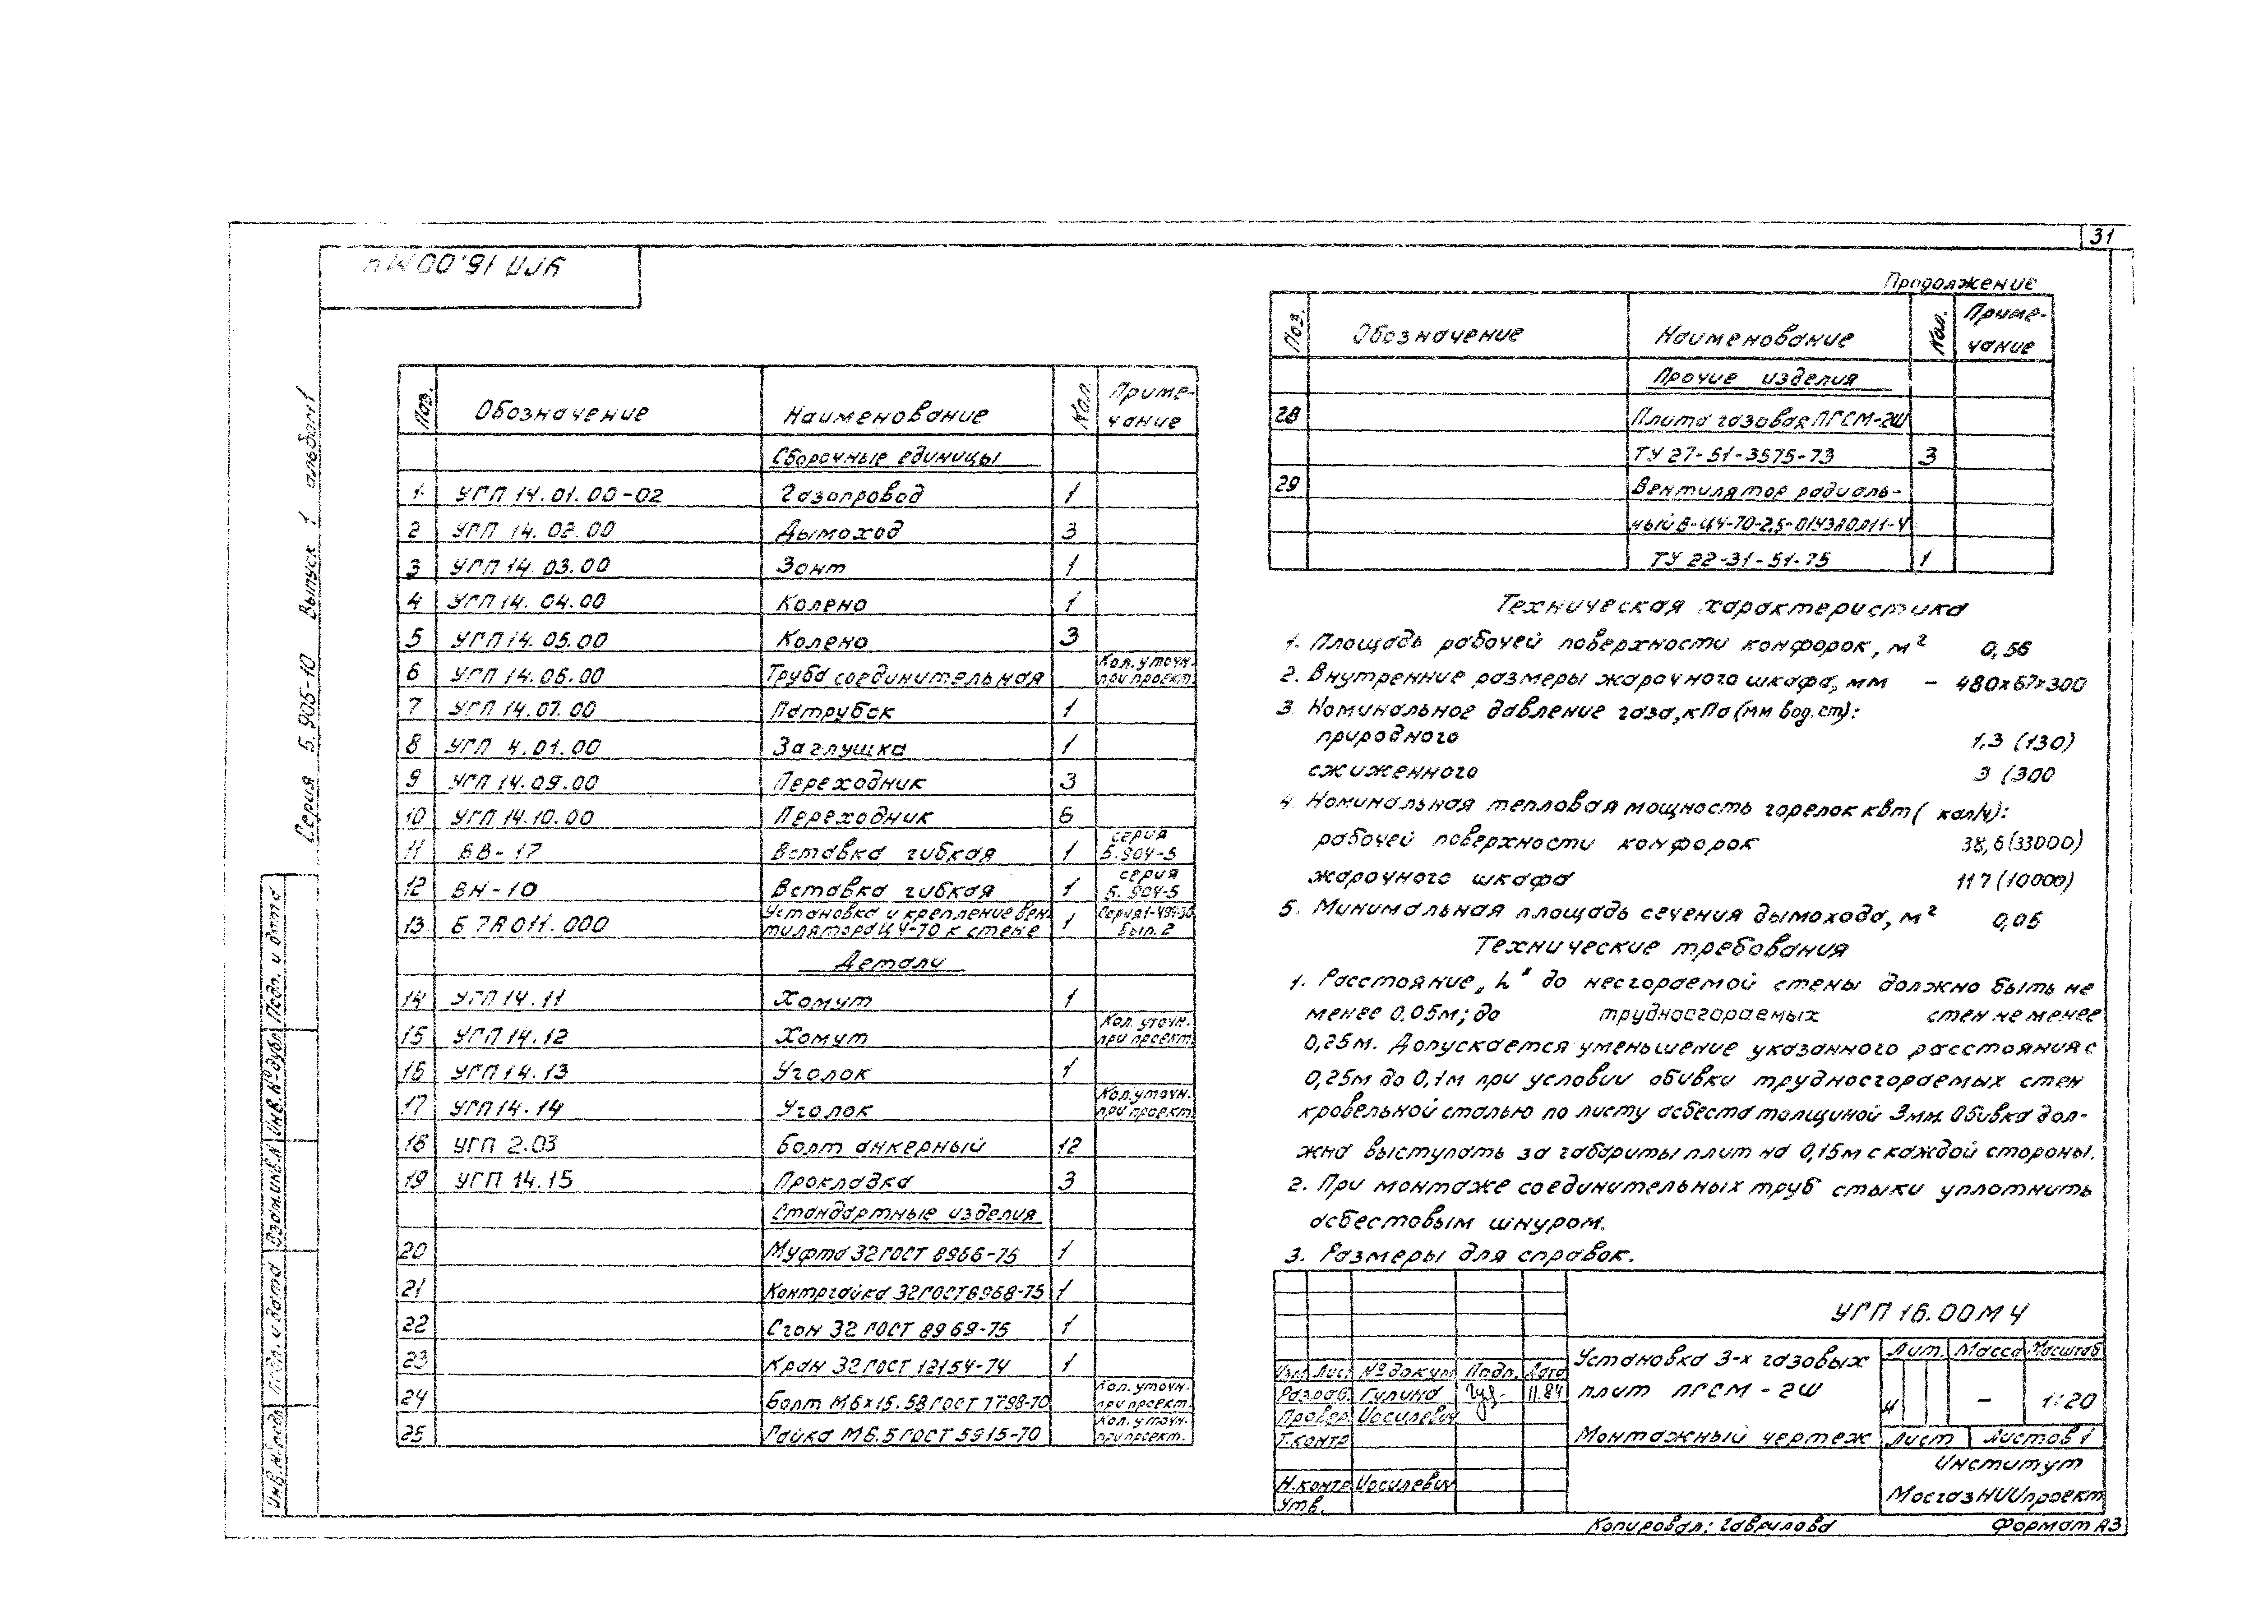 31
УГП 16.00МЧ
Серия 5.905-10 Выпуск 1 альбом 1
Поз. Обозначение Наименование Кол. Приме-
чание
Сборочные единицы
1 УГП 14.01.00-02 Газопровод 1
2 УГП 14.02.00 Дымоход 3
3 УГП 14.03.00 Зонт 1
4 УГП 14.04.00 Колено 1
5 УГП 14.05.00 Колено 3
6 УГП 14.06.00 Труба соединительная Кол. уточн.
при проект.
7 УГП 14.07.00 Патрубок 1
8 УГП 4.01.00 Заглушка 1
9 УГП 14.09.00 Переходник 3
10 УГП 14.10.00 Переходник 6
11 ВВ-17 Вставка гибкая 1 серия
5.904-5
12 ВН-10 Вставка гибкая 1 серия
5.904-5
13 Б 7А 011.000 Установка и крепление вен-
тилятора Ц4-70 к стене 1 Серия 1-494-30
Вып. 2
Детали
14 УГП 14.11 Хомут 1
15 УГП 14.12 Хомут Кол. уточн.
при проект.
16 УГП 14.13 Уголок 1
17 УГП 14.14 Уголок Кол. уточн.
при проект.
18 УГП 2.03 Болт анкерный 12
19 УГП 14.15 Прокладка 3
Стандартные изделия
20 Муфта 32 ГОСТ 8966-75 1
21 Контргайка 32 ГОСТ 8968-75 1
22 Сгон 32 ГОСТ 8969-75 1
23 Кран 32 ГОСТ 12154-74 1
24 Болт М6х15.58 ГОСТ 7798-70 Кол. уточн.
при проект.
25 Гайка М6.5 ГОСТ 5915-70 Кол. уточн.
при проект.
Продолжение
Поз. Обозначение Наименование Кол. Приме-
чание
Прочие изделия
28 Плита газовая ПГСМ-2Ш
ТУ 27-51-3575-73 3
29 Вентилятор радиаль-
ный В-Ц4-70-2,5-01
ТУ 22-31-51-75 1
Техническая характеристика
1. Площадь рабочей поверхности конфорок, м² 0,56
2. Внутренние размеры жарочного шкафа, мм - 480х67х300
3. Номинальное давление газа, кПа (мм вод. ст):
природного 1,3 (130)
сжиженного 3 (300
4. Номинальная тепловая мощность горелок квт ( кал/ч):
рабочей поверхности конфорок 38,6 (33000)
жарочного шкафа 11 7 (10000)
5. Минимальная площадь сечения дымохода, м² 0,06
Технические требования
1. Расстояние „h" до несгораемой стены должно быть не
менее 0.05м; до трудносгораемых стен не менее
0,25м. Допускается уменьшение указанного расстояния с
0,25м до 0,1м при условии обивки трудносгораемых стен
кровельной сталью по листу асбеста толщиной 3мм. Обивка дол-
жна выступать за габариты плит на 0,15м с каждой стороны.
2. При монтаже соединительных труб стыки уплотнить
асбестовым шнуром.
3. Размеры для справок.
УГП 16.00МЧ
Изм Лист № докум Подп. Дата
Разраб. Гулина 11.84
Провер. Иосилевич
Т.контр
Н.контр Иосилевич
Утв.
Установка 3-х газовых
плит ПГСМ-2Ш
Монтажный чертеж
Лит. Масса Масштаб
И - 1:20
Лист Листов 1
Институт
МосгазНИИпроект
Копировал: Гаврилова Формат А3
Подп. и дата
Инв. № дубл
Взам. инв. №
Подп. и дата
Инв. № подл